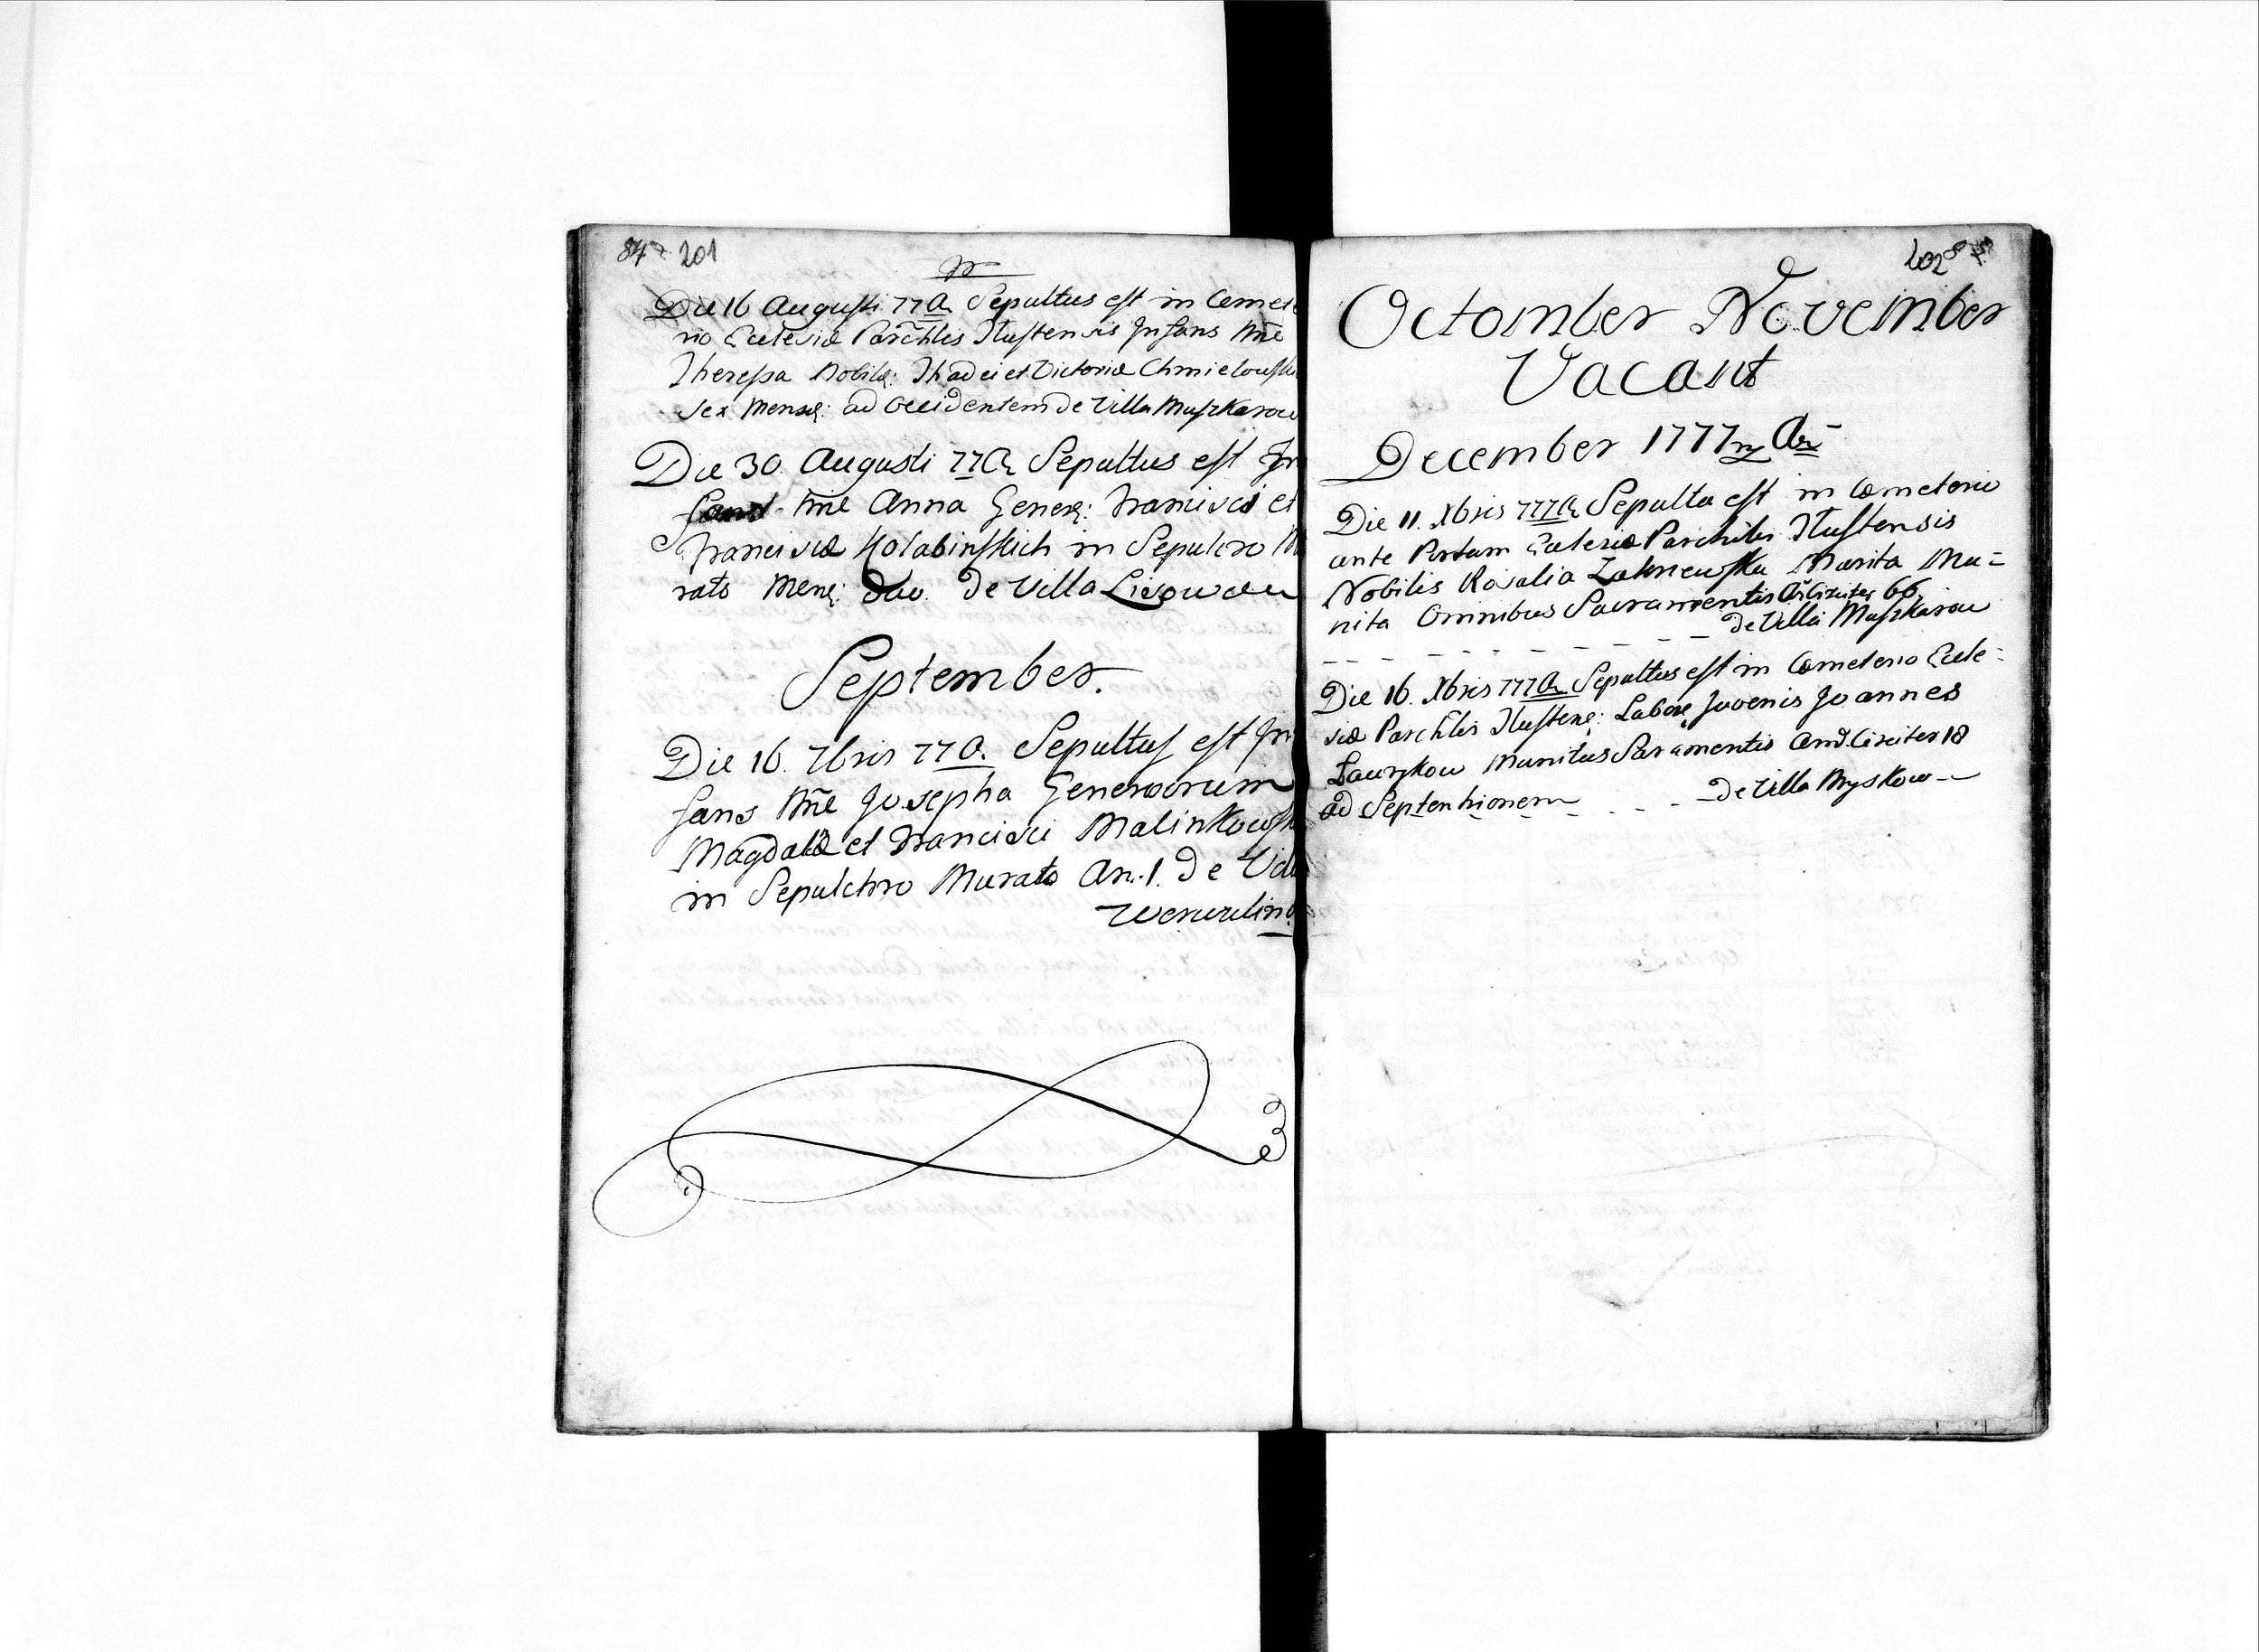 201
Die 16 Augusti 77 A. Sepultus est in Cemete
rio Ecclesiæ Parchlis Tłustensis Infans nñe
Theressa Nobiliũ: Thadei et Victoriæ Chmielowski
Sex Mensiũ: ad Occidentem de Villa Muszkarow
Die 30. Augusti 77 A. Sepultus est In
fans nñe Anna Generũ: Francisci et
Franciscæ Hołabinskich in Sepulcro Mu
rato Menũ: duo. de Villa Lisowce
September.
Die 16. 7bris 77 A. Sepultus est In
fans nñe Josepha Generosorum
Magdalæ et Francisci Malinkowsk
in Sepulchro Murato An. 1. de Villa
202
Octomber November
Vacant
December 1777
Die 11. Xbris 777 A. Sepulta est in Cœmeterio
ante Portam Eclesiæ Parchilis Tłustensis
Nobilis Rosalia Marita Mu=
nita Omnibus Sacramentis A. Circiter 66.
de Villa Muszkarow
Die 16. Xbris 777 A. Sepultus est in Cœmeterio Ecle=
siæ Parchlis Tłusteñ: Labor Juvenis Joannes
Ławrykow Munitus Saramentis Circiter 18
ad Septentrionem - - - de Villa Myskow